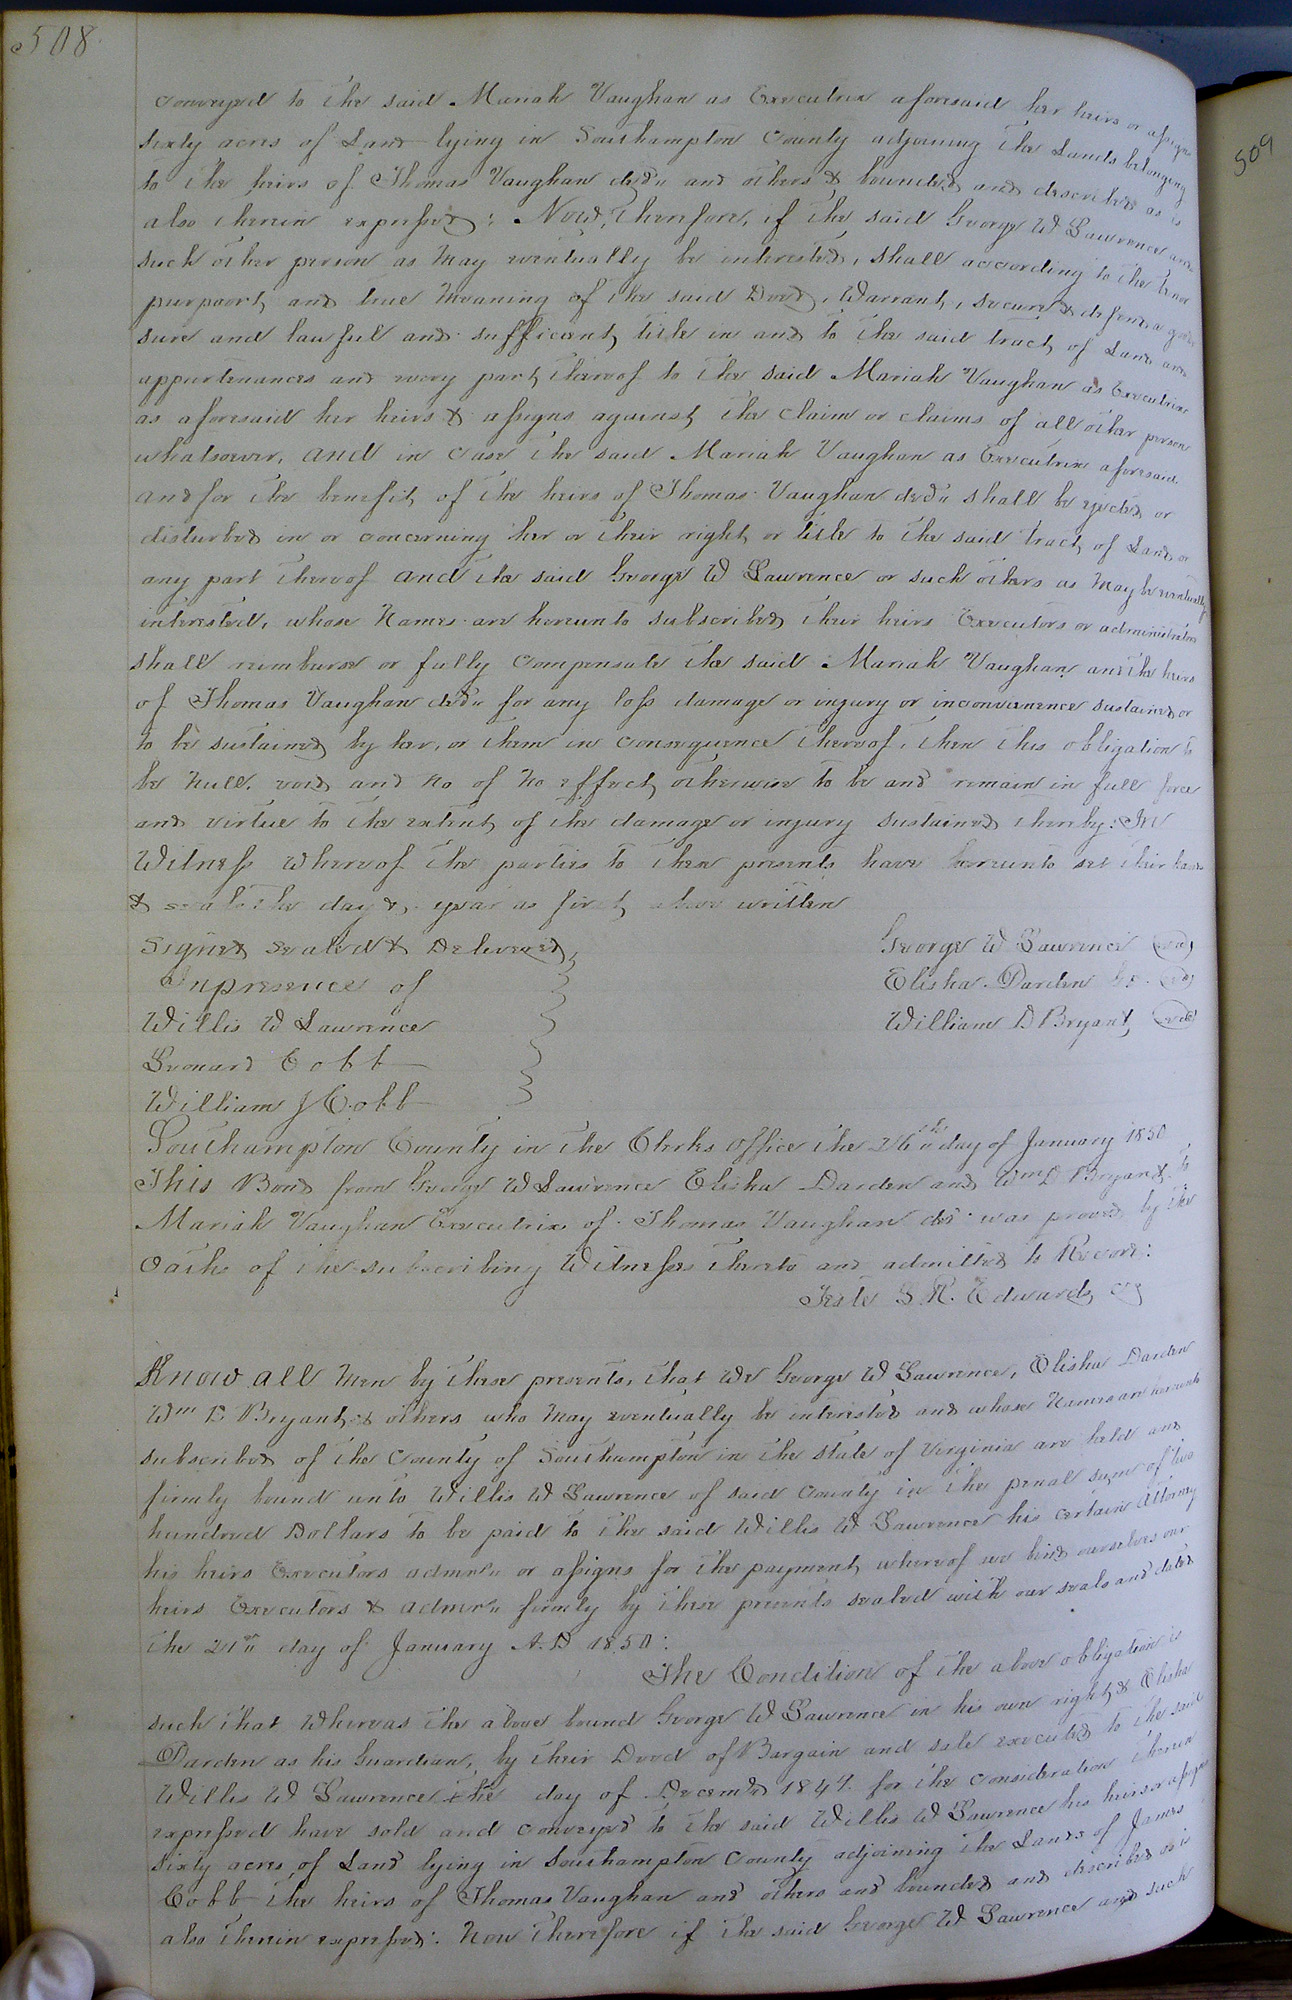 508
509
conveyed to the said Mariah Vaughan as Executrix aforesaid her heirs or assigns
sixty acres of Land lying in Southampton County adjoining the Lands belonging
to the heirs of Thomas Vaughan decd and others & bounded and described as is
also therein expressed: Now, Therefore, if the said George W Lawrence and
such other person as may eventually be interested, shall according to the tenor
purpoort, and true meaning of the said Deed, Warrant, secure & defend a good
sure and lawful and sufficient, title in and to the said tract of Land and
appurtenances and every part, thereof to the said Mariah Vaughan as Executrix
as aforesaid her heirs & assigns against, the claim or claims of all other person
whatsoever, and in case the said Mariah Vaughan as Executrix aforesaid
and for the benefit, of the heirs of Thomas Vaughan decd shall be ejected or
disturbed in or concerning her or their right, or title to the said tract, of Land or
any part thereof and the said George W Lawrence or such others as may be eventually
interested, whose Names are hereunto subscribed, their heirs Executors or administrators
shall reimburse or fully compensate the said Mariah Vaughan and the heirs
of Thomas Vaughan decd for any loss damage or injury or inconvenience sustained or
to be sustained by her, or them in consequence thereof, then this obligation to
be null, void and no of no effect, otherwise to be and remain in full force
and virtue to the extent, of the damage or injury sustained thereby: In
Witness whereof the parties to these presents have hereunto set their hands
& seals the day & year as first, above written
Signed sealed & Delivered,
Inpresence of
Willis W Lawrence
Leonard Cobb
William J Cobb
George W Lawrence (seal)
Elisha Darden (seal)
William D Bryant, (seal)
Southampton County in the Clerks office the 26th day of January 1850
This Bond from George W Lawrence Elisha Darden and Wm D Bryant, to
Mariah Vaughan Executrix of Thomas Vaughan decd was proved by the
Oaths of the subscribing Witnesses thereto and admitted to Record:
Teste L R. Edwards, CC
Know all men by these presents, that We George W Lawrence, Elisha Darden
Wm D Bryant, & others who may eventually be interested and whose Names are hereunto
subscribed of the County of Southampton in the state of Virginia are held and
firmly bound unto Willis W Lawrence of said County in the penal sum of two
hundred Dollars to be paid to the said Willis W Lawrence his certain Attorney
his heirs Executors admrs or assigns for the payment, whereof we bind ourselves our
heirs Executors & admrs firmly by these presents sealed with our seals and dated
the 21st day of January A.D 1850:
The Condition of the above obligation is
such that Whereas the above bound George W Lawrence in his own right, & Elisha
Darden as his Guardian, by their Deed of Bargain and sale executed to the said
Willis W Lawrence the day of Decemb 1849. for the consideration therein
expressed have sold and conveyed to the said Willis W Lawrence his heirs or assigns
sixty acres, of Land lying in Southampton County adjoining the Lands of James
Cobb the heirs of Thomas Vaughan and others and bounded and described as is
also therein expressed: Now Therefore if the said George W Lawrence and such